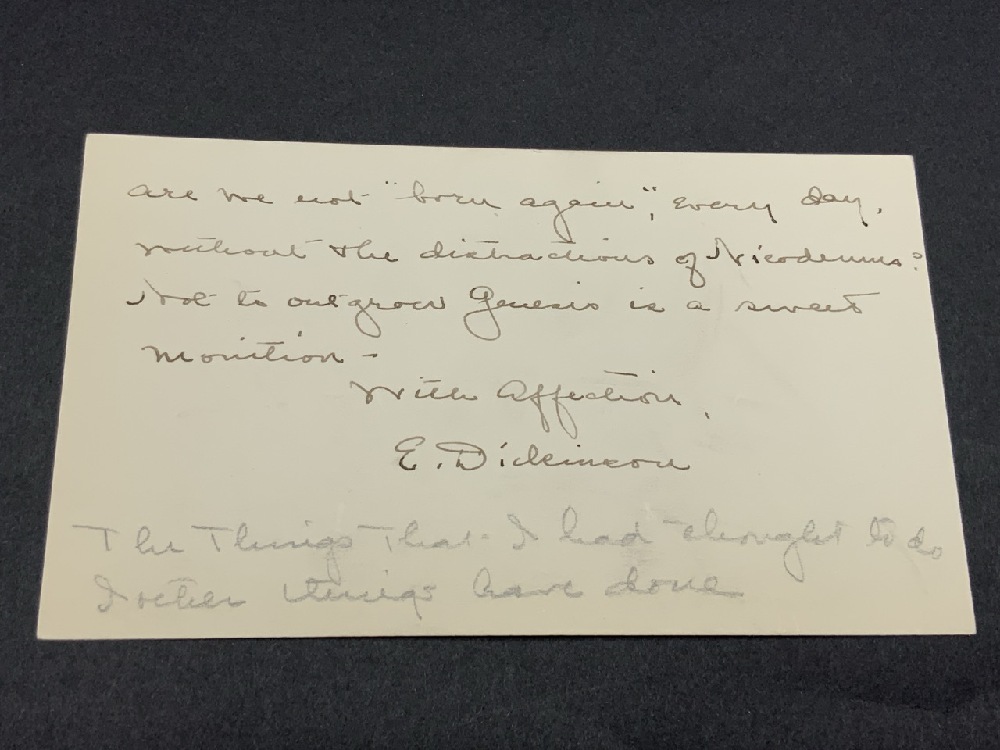 are we not "born again", every day,
without the distractions of Nicodemus?
Not to outgrow Genesis is a sweet
monition -
With Affection,
E. Dickinson
The Things that I had thought to do
I other things have done